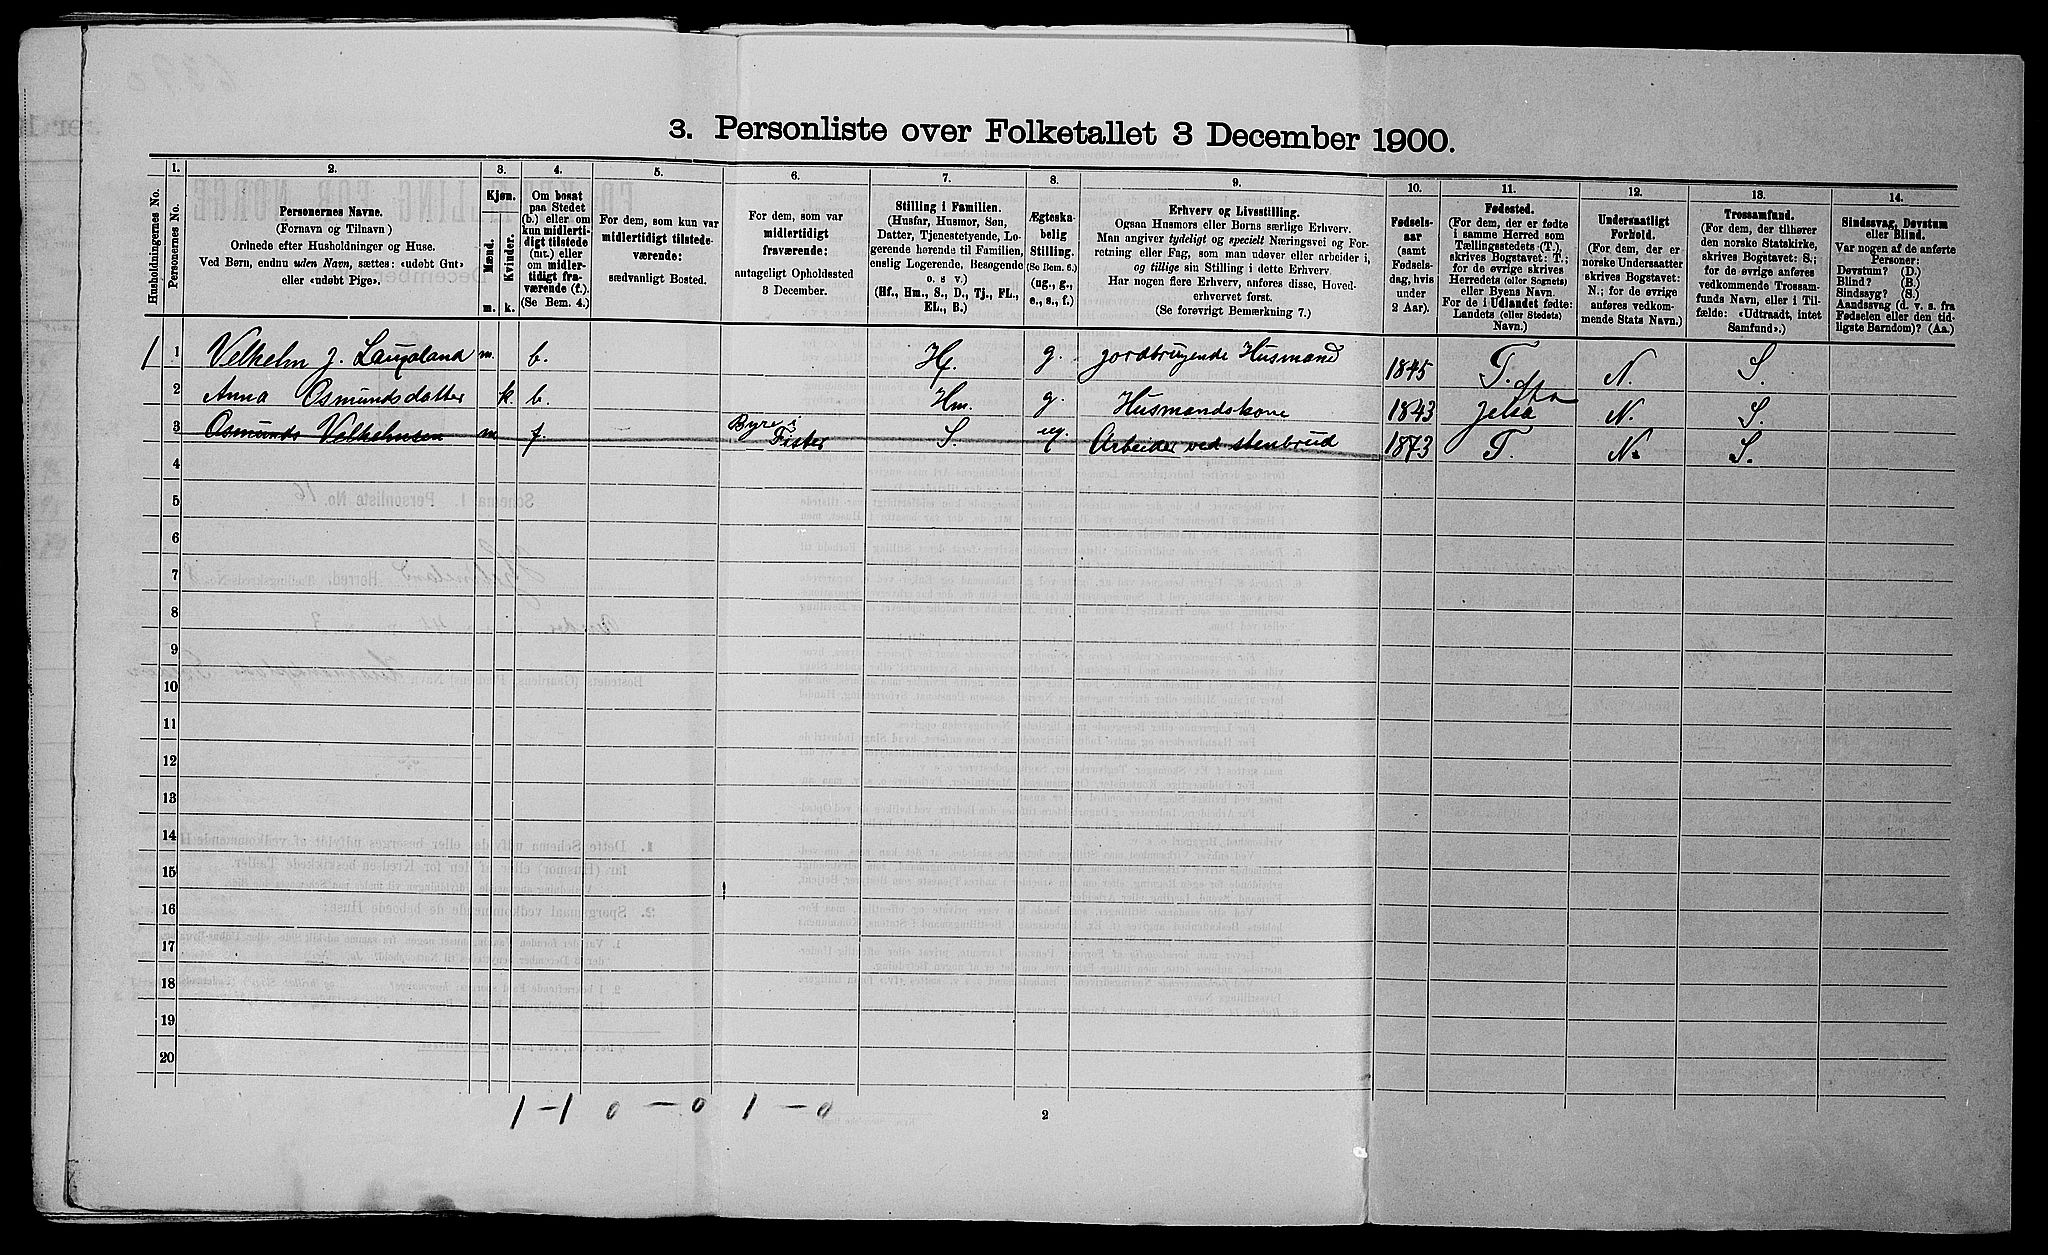 3. Personliste over Folketallet 3 December 1900.
Husholdningernes No.
1.
Personernes No.
2.
Personernes Navne.
(Fornavn og Tilnavn)
Ordnede efter Husholdninger og Huse.
Ved Børn, endnu uden Navn, sættes: «udøbt Gut»
eller «udøbt Pige».
3.
Kjøn.
Mænd.
Kvinder.
m. k.
4.
Om bosat
paa Stedet
(b.) eller om
kun midlerti-
digt tilstede
(mt.) eller
om midler-
tidigt fra-
værende (f.).
(Se Bem. 4.)
5.
For dem, som kun var
midlertidigt tilstede-
værende:
sædvanligt Bosted.
6.
For dem, som var
midlertidigt
fraværende:
antageligt Opholdssted
3 December.
7.
Stilling i Familien.
(Husfar, Husmor, Søn,
Datter, Tjenestetyende, Lo-
gerende hørende til Familien,
enslig Logerende, Besøgende
o. s v.)
(Hf., Hm., S., D., Tj., FL.,
EL., B.)
8.
Ægteska-
belig
Stilling.
(Se Bem. 6.)
(ug., g.,
e., s., f.)
9.
Erhverv og Livsstilling.
Ogsaa Husmors eller Børns særlige Erhverv.
Man angiver tydeligt og specielt Næringsvei og For-
retning eller Fag, som man udøver eller arbeider i,
og tillige sin Stilling i dette Erhverv.
Har nogen flere Erhverv, anføres disse, Hoved-
erhvervet først.
(Se forøvrigt Bemærkning 7.)
10.
Fødsels-
aar
(samt
Fødsels-
dag, hvis
under
2 Aar).
11.
Fødested.
(For dem, der er fødte
i samme Herred som
Tællingsstedets (T.),
skrives Bogstavet: T.;
for de øvrige skrives
Herredets (eller Sognets)
eller Byens Navn.
For de i Udlandet fødte:
Landets (eller Stedets)
Navn.)
12.
Undersaatligt
Forhold.
(For dem, der er
norske Undersaatter
skrives Bogstavet:
N.; for de øvrige
anføres vedkom-
mende Stats Navn.)
13.
Trossamfund.
(For dem, der tilhører
den norske Statskirke,
skrives Bogstavet: S.;
for de øvrige anføres
vedkommende Trossam-
funds Navn, eller i Til-
fælde: «Udtraadt, intet
Samfund».)
14.
Sindssvag, Døvstum
eller Blind.
Var nogen af de anførte
Personer:
Døvstum? (D.)
Blind? (B.)
Sindssyg? (S.)
Aandssvag (d. v. s. fra
Fødselen eller den tid-
ligste Barndom)? (Aa.)
1 1 Velhelm J. Laugaland m. b. Hf. g. jordbrugende Husmand 1845 T. N. S.
2 Anna Osmundsdatter k. b. Hm. g. Husmandskone 1843 Jelsa N. S.
3 Osmunds Velhelmsen m f. Byre i Fister S. ug. Arbeider ved stenbrud 1873 T. N. S.
4
5
6
7
8
9
10
11
12
13
14
15
16
17
18
19
20
1-1 0-0 1-0
2